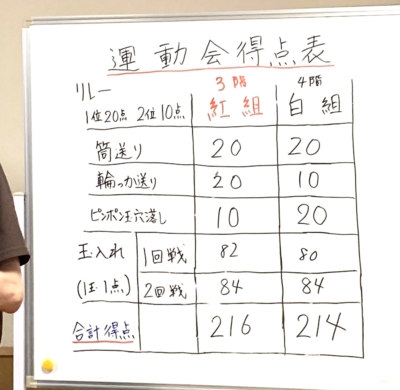 運動会得点表
リレー 3階 4階
1位20点 2位10点 紅組 白組
筒送り 20 20
輪っか送り 20 10
ピンポン玉穴落し 10 20
玉入れ 1回戦 82 80
(1玉1点) 2回戦 84 84
合計得点 216 214